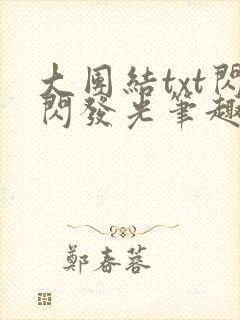 大團結txt閃
閃發光筆趣
鄭春蓉